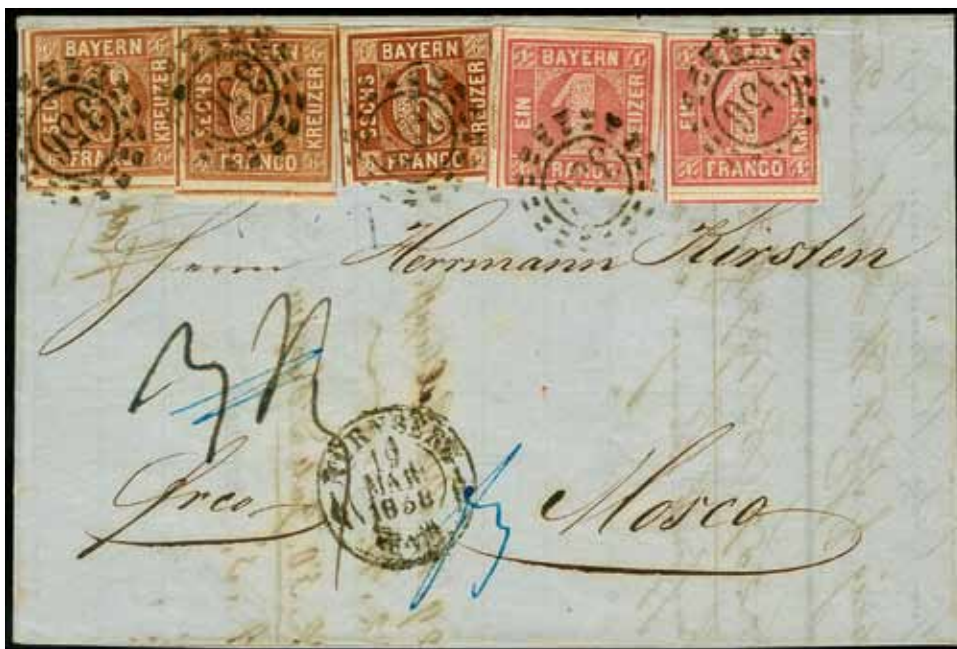 BAYERN
SECHS KREUZER
FRANCO
BAYERN
SECHS KREUZER
FRANCO
BAYERN
SECHS 6 KREUZER
FRANCO
BAYERN
EIN 1 KREUZER
FRANCO
BAYERN
EIN KREUZER
FRANCO
350
350
350
350
Herrn Herrmann Kirsten
NÜRNBERG
19
MÄR
1858
Frco Mosco